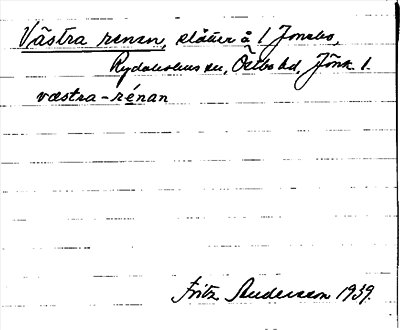 Västra renan, slåtter å 1 Jonsbo,
Rydaholms sn, Östbo hd, Jönk. l.
væstra-rénan
Fritz Andersson 1939.